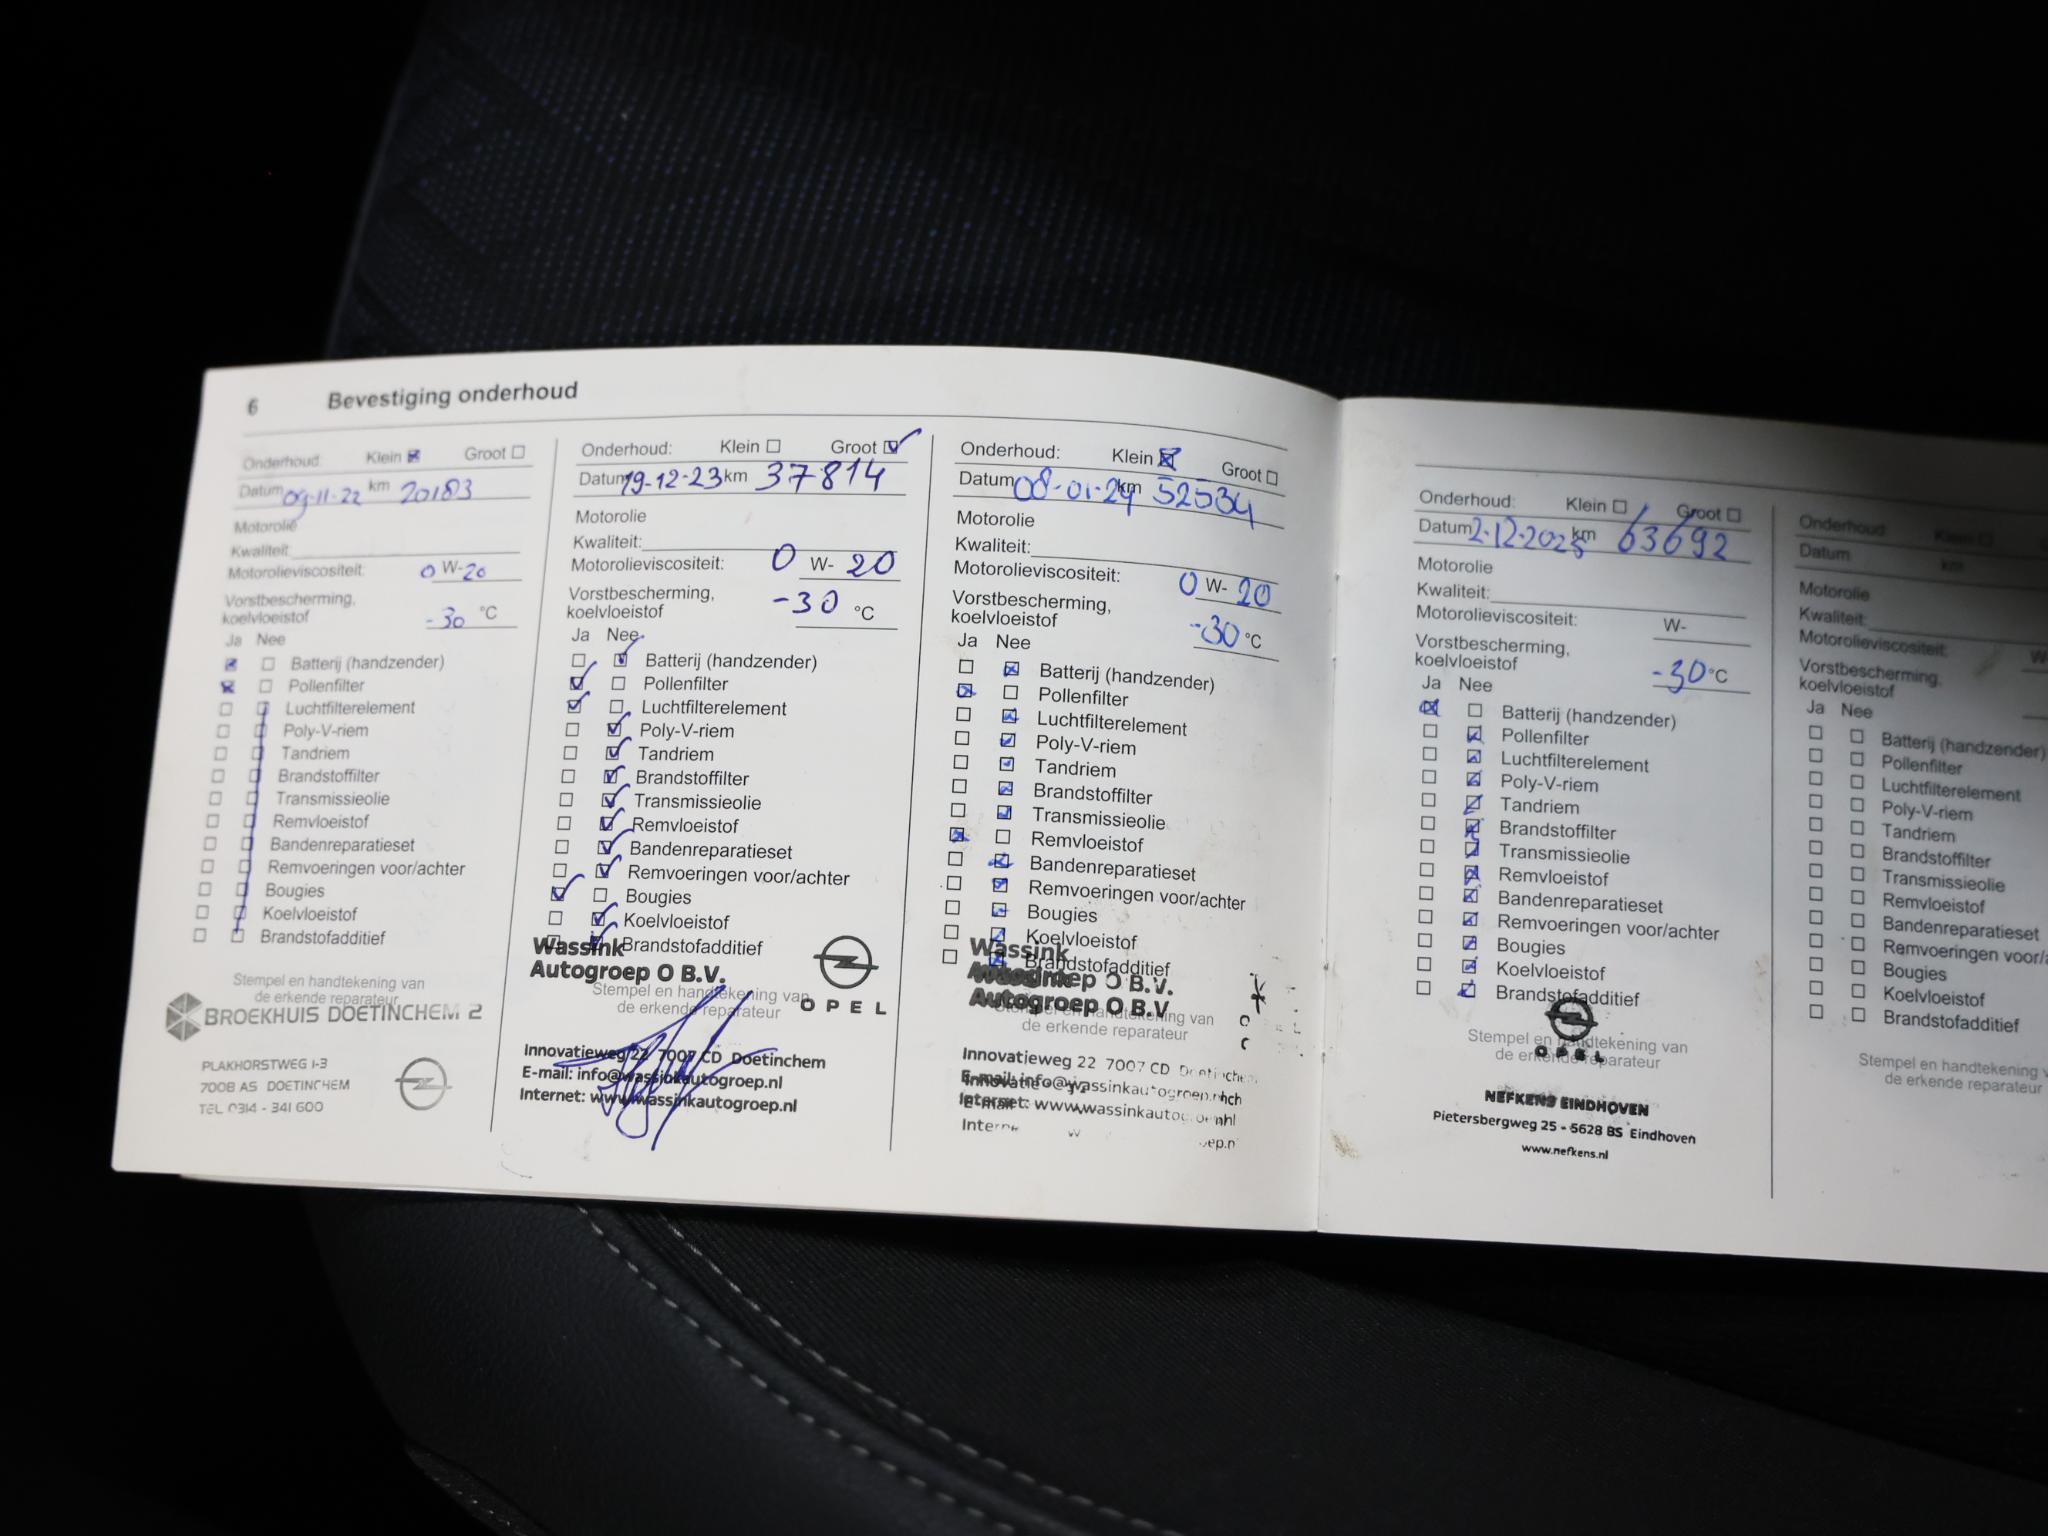 6 Bevestiging onderhoud
Onderhoud: Klein Groot
Datum 09-11-22 km 20183
Motorolie
Kwaliteit:
Motorolieviscositeit: 0 W-20
Vorstbescherming,
koelvloeistof -30 °C
Ja Nee
Batterij (handzender)
Pollenfilter
Luchtfilterelement
Poly-V-riem
Tandriem
Brandstoffilter
Transmissieolie
Remvloeistof
Bandenreparatieset
Remvoeringen voor/achter
Bougies
Koelvloeistof
Brandstofadditief
Stempel en handtekening van
de erkende reparateur
BROEKHUIS DOETINCHEM 2
PLAKHORSTWEG 1-3
7008 AS DOETINCHEM
TEL. 0314 - 341 600
Onderhoud: Klein Groot
Datum 19-12-23 km 37814
Motorolie
Kwaliteit:
Motorolieviscositeit: 0 W- 20
Vorstbescherming,
koelvloeistof -30 °C
Ja Nee
Batterij (handzender)
Pollenfilter
Luchtfilterelement
Poly-V-riem
Tandriem
Brandstoffilter
Transmissieolie
Remvloeistof
Bandenreparatieset
Remvoeringen voor/achter
Bougies
Koelvloeistof
Brandstofadditief
Wassink
Autogroep O B.V.
OPEL
Stempel en handtekening van
de erkende reparateur
Innovatieweg 22 7007 CD Doetinchem
E-mail: info@wassinkautogroep.nl
Internet: www.wassinkautogroep.nl
Onderhoud: Klein Groot
Datum 08-01-24 km 52534
Motorolie
Kwaliteit:
Motorolieviscositeit: 0 W- 20
Vorstbescherming,
koelvloeistof -30 °C
Ja Nee
Batterij (handzender)
Pollenfilter
Luchtfilterelement
Poly-V-riem
Tandriem
Brandstoffilter
Transmissieolie
Remvloeistof
Bandenreparatieset
Remvoeringen voor/achter
Bougies
Koelvloeistof
Brandstofadditief
Wassink
Autogroep O B.V.
Autogroep O B.V
Stempel en handtekening van
de erkende reparateur
Innovatieweg 22 7007 CD Doetinchem
E-mail: info@wassinkautogroep.nl
Internet: www.wassinkautogroep.nl
Onderhoud: Klein Groot
Datum 2-12-2025 km 63692
Motorolie
Kwaliteit:
Motorolieviscositeit: W-
Vorstbescherming,
koelvloeistof -30 °C
Ja Nee
Batterij (handzender)
Pollenfilter
Luchtfilterelement
Poly-V-riem
Tandriem
Brandstoffilter
Transmissieolie
Remvloeistof
Bandenreparatieset
Remvoeringen voor/achter
Bougies
Koelvloeistof
Brandstofadditief
Stempel en handtekening van
de erkende reparateur
OPEL
NEFKENS EINDHOVEN
Pietersbergweg 25 - 5628 BS Eindhoven
www.nefkens.nl
Onderhoud: Klein
Datum km
Motorolie
Kwaliteit:
Motorolieviscositeit: W
Vorstbescherming,
koelvloeistof
Ja Nee
Batterij (handzender)
Pollenfilter
Luchtfilterelement
Poly-V-riem
Tandriem
Brandstoffilter
Transmissieolie
Remvloeistof
Bandenreparatieset
Remvoeringen voor/
Bougies
Koelvloeistof
Brandstofadditief
Stempel en handtekening
de erkende reparateur